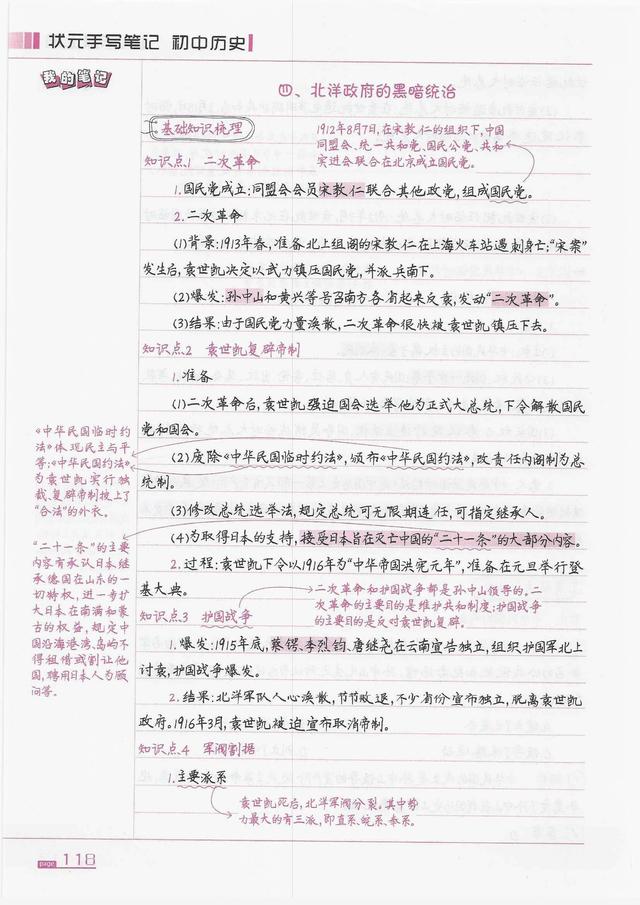 状元手写笔记 初中历史
我的笔记
四、北洋政府的黑暗统治
基础知识梳理
1912年8月7日,在宋教仁的组织下,中国
同盟会、统一共和党、国民公党、共和
实进会联合在北京成立国民党。
知识点1 二次革命
1.国民党成立:同盟会会员宋教仁联合其他政党,组成国民党。
2.二次革命
(1)背景:1913年春,准备北上组阁的宋教仁在上海火车站遇刺身亡;“宋案”
发生后,袁世凯决定以武力镇压国民党,并派兵南下。
(2)爆发:孙中山和黄兴等号召南方各省起来反袁,发动“二次革命”。
(3)结果:由于国民党力量涣散,二次革命很快被袁世凯镇压下去。
知识点2 袁世凯复辟帝制
1.准备
(1)二次革命后,袁世凯强迫国会选举他为正式大总统,下令解散国民
党和国会。
(2)废除《中华民国临时约法》,颁布《中华民国约法》,改责任内阁制为总
统制。
(3)修改总统选举法,规定总统可无限期连任,可指定继承人。
(4)为取得日本的支持,接受日本旨在灭亡中国的“二十一条”的大部分内容。
2.过程:袁世凯下令以1916年为“中华帝国洪宪元年”,准备在元旦举行登
基大典。
《中华民国临时约
法》体现民主与平
等;《中华民国约法》
为袁世凯实行独
裁、复辟帝制披上了
“合法”的外衣。
“二十一条”的主要
内容有承认日本继
承德国在山东的一
切特权,进一步扩
大日本在南满和蒙
古的权益,规定中
国沿海港湾、岛屿不
得租借或割让他
国,聘用日本人为顾
问等。
二次革命和护国战争都是孙中山领导的。二
次革命的主要目的是维护共和制度;护国战争
的主要目的是反对袁世凯复辟。
知识点3 护国战争
1.爆发:1915年底,蔡锷、李烈钧、唐继尧在云南宣告独立,组织护国军北上
讨袁,护国战争爆发。
2.结果:北洋军队人心涣散,节节败退,不少省份宣布独立,脱离袁世凯
政府。1916年3月,袁世凯被迫宣布取消帝制。
知识点4 军阀割据
1.主要派系
袁世凯死后,北洋军阀分裂。其中势
力最大的有三派,即直系、皖系、奉系。
page 118